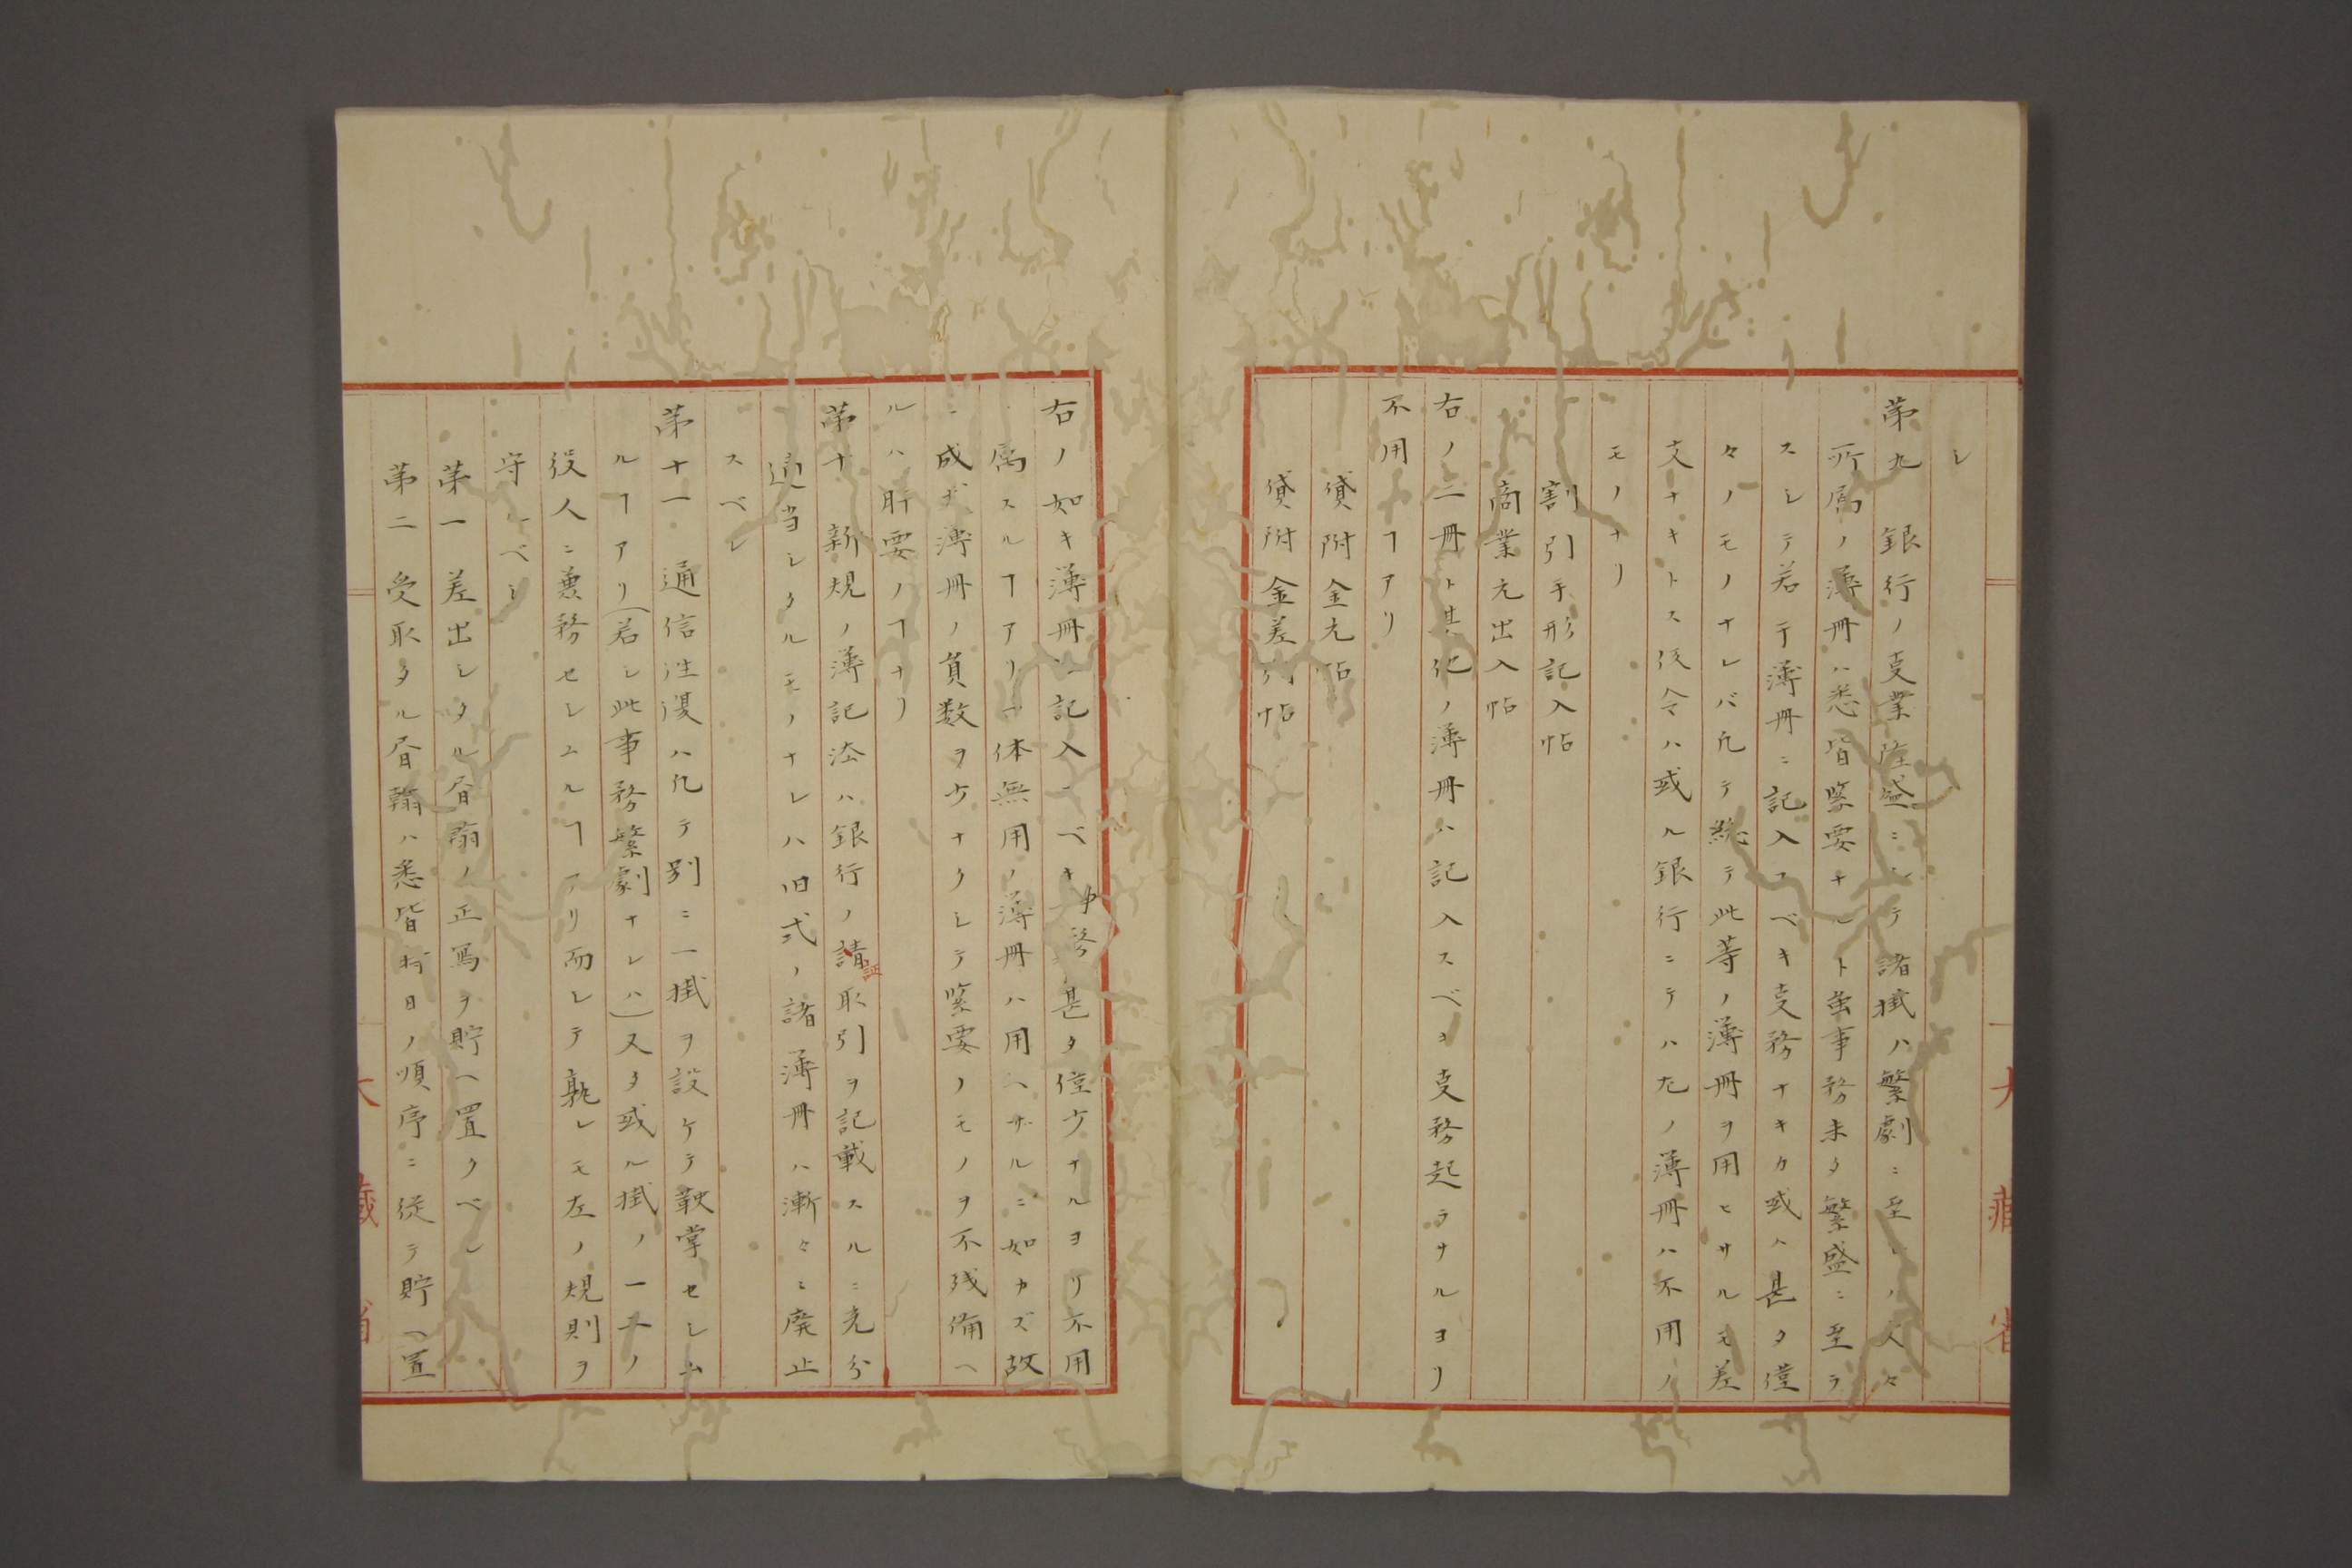 シ
第九 銀行ノ支業隆盛ニシテ諸掛ハ繁劇ニ至レハ人々
所属ノ簿冊ハ悉皆緊要ナルト虽事務未タ繁盛ニ至ラ
スシテ若干簿冊ニ記入スベキ支務ナキカ或ハ甚タ僅
々ノモノナレバ凡テ総テ此等ノ簿冊ヲ用ヒサルモ差
支ナキトス仮令ハ或ル銀行ニテハ左ノ簿冊ハ不用ノ
モノナリ
割引手形記入帖
商業元出入帖
右ノ二冊ト其他ノ簿冊ハ記入スベキ支務起ラサルヨリ
不用ノヿアリ
貸附金元帖
貸附金差引帖
右ノ如キ簿冊ニ記入スベキ事務甚タ僅少ナルヨリ不用
ニ属スルヿアリ一体無用ノ簿冊ハ用ヘサルニ如カズ故
ニ成丈簿冊ノ員数ヲ少ナクシテ緊要ノモノヲ不残備ヘ
ルハ肝要ノヿナリ
第十 新規ノ簿記法ハ銀行ノ請取引ヲ記載スルニ充分
適当シタルモノナレハ旧式ノ諸簿冊ハ漸々ニ廃止
スベシ
第十一 通信往復ハ凡テ別ニ一掛ヲ設ケテ鞅掌セシム
ルヿアリ(若シ此事務繁劇ナレハ)又タ或ル掛ノ一二ノ
役人ニ兼務セシムルヿアリ而シテ孰レモ左ノ規則ヲ
守ルベシ
第一 差出シタル書翰ノ正写ヲ貯ヘ置クベシ
第二 受取タル書翰ハ悉皆其日ノ順序ニ従テ貯ヘ置
大藏省